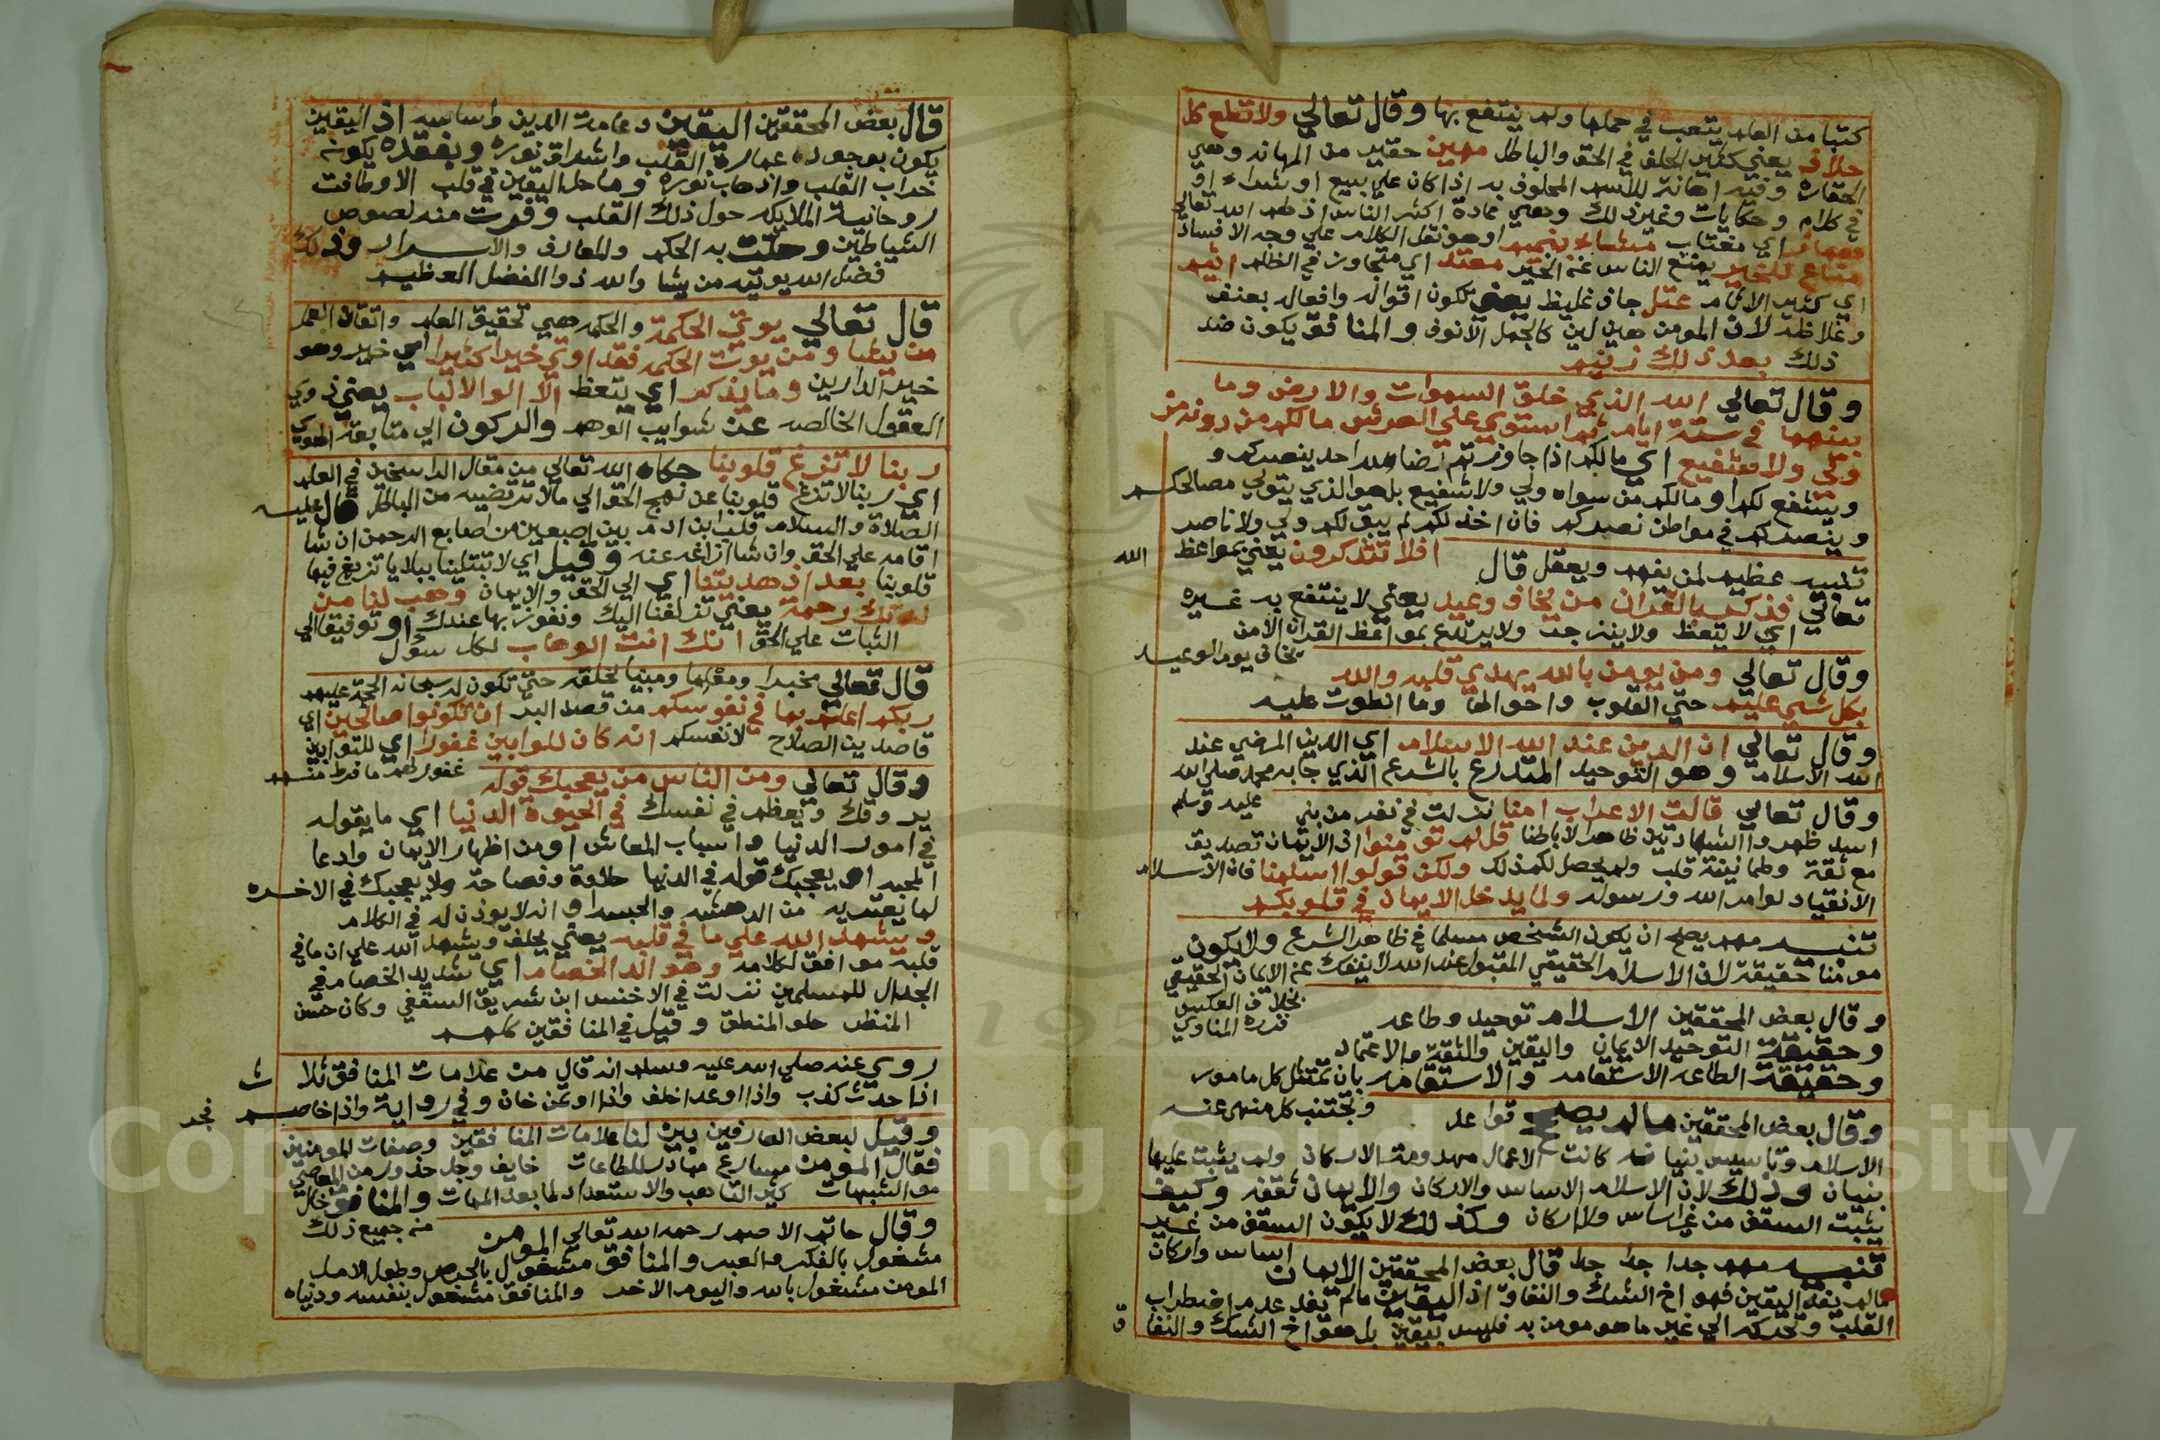 كتبا من العلم يتعب في حملها ولم ينتفع بها وقال تعالي ولا تطع كل
حلاف يعني كثير الحلف في الحق والباطل مهين حقير من المهانه وهي
الحقاره وفيه اهانة للاسم المحلوف به اذا كان علي بيع او شراء او
في كلام وحكايات وغير ذلك وهي عادة اكثر الناس اذ طهر الله تعالي
هماز اي مغتاب مشاء بنميم او هو نقل الكلام علي وجه الافساد
مناع للخير يمنع الناس عن الخير معتد اي متجاوز في الظلم اثيم
اي كثير الاثام عتل جاف غليظ يعني تكون اقواله وافعاله بعنف
وغلاظه لان المومن هين لين كالجمل الانوف والمنافق يكون ضد
ذلك بعد ذلك زنيم
وقال تعالي الله الذي خلق السموات والارض وما
بينهما في ستة ايام ثم استوي علي العرش ما لكم من دونه من
ولي ولا شفيع اي ما لكم اذا جاوزتم رضا الله احد ينصركم و
ويشفع لكم او ما لكم من سواه ولي ولا شفيع بل هو الذي يتولي مصالحكم
وينصركم في مواطن نصركم فان اخذلكم لم يبق لكم ولي ولا ناصر
افلا تتذكرون يعني بمواعظ الله
تنبيه عظيم لمن يفهم ويعقل قال
تعالي فذكر بالقران من يخاف وعيد يعني لا ينتفع به غيره
اي لا يتعظ ولا ينزجر ولا يرتدع بمواعظ القران الا من
يخاف يوم الوعيد
وقال تعالي ومن يومن بالله يهدي قلبه والله
بكل شي عليم حتي القلوب واحوالها وما انطوت عليه
وقال تعالي ان الدين عند الله الاسلام اي الدين المرضي عند
الله الاسلام وهو التوحيد المتدرع بالشرع الذي جا به محمد صلي الله
عليه وسلم
وقال تعالي قالت الاعراب امنا نزلت في نفر من بني
اسد ظهروا الشهادتين ظاهرا لا باطنا قل لم تومنوا اذ الايمان تصديق
مع ثقة وطمانينة قلب ولم يحصل لكم ذلك ولكن قولوا اسلمنا فان الاسلام
الانقياد لوامر الله ورسوله ولما يدخل الايمان في قلوبكم
تنبيه مهم يصح ان يكون الشخص مسلما في ظاهر الشرع ولا يكون
مومنا حقيقة لان الاسلام الحقيقي المقبول عند الله لا ينفك عن الايمان الحقيقي
بخلاف العكس
قرره المناوي
وقال بعض المحققين الاسلام توحيد وطاعه
وحقيقة التوحيد الايمان واليقين والثقة والاعتماد
وحقيقة الطاعه الاستقامه والاستقامه بان تمتثل كل مامور
وتجتنب كل منهي عنه
وقال بعض المحققين ما لم يصح قواعد
الاسلام وتاسيس بنيانه كانت الاعمال مهدومة الاركان ولم يثبت عليها
بنيان وذلك لان الاسلام الاساس والاركان والايمان سقفه وكيف
يثبت السقف من غير اساس ولا اركان وكذلك لا يكون السقف من غير
اساس واركان
تنبيه مهم جدا جدا جدا قال بعض المحققين الايمان
مالم يفد اليقين فهو اخ الشك والنفاق اذ اليقين مالم يفد عدم اضطراب
القلب وتحركه الي غير ما هو مومن به فليس بيقين بل هو اخ الشك والنفا
ق
قال بعض المحققين اليقين دعامة الدين واساسه اذ اليقين
يكون بوجوده عمارة القلب واشراق نوره وبفقده يكونه
خراب القلب واذهاب نوره وما حل اليقين في قلب الا وطافت
روحانية الملايكه حول ذلك القلب وفرت منه لصوص
الشياطين وحلت به الحكم والمعارف والاسرار وذلك
فضل الله يوتيه من يشا والله ذو الفضل العظيم
قال تعالي يوتي الحكمة والحكمه هي تحقيق العلم واتقان العمل
من يشا ومن يوت الحكمه فقد اوتي خيرا كثيرا اي خير وهو
خير الدارين وما يذكر اي يتعظ الا اولو الالباب يعني ذوي
العقول الخالصه عن شوايب الوهم والركون الي متابعة الهوي
ربنا لا تزغ قلوبنا حكاه الله تعالي من مقال الراسخين في العلم
اي ربنا لا تزغ قلوبنا عن نهج الحق الي ما لا ترتضيه من الباطل قال عليه
الصلاة والسلام قلب ابن ادم بين اصبعين من اصابع الرحمن ان شا
اقامه علي الحق وان شا ازاغه عنه وقيل اي لا تبتلينا ببلايا تزيغ فيها
قلوبنا بعد اذ هديتنا اي الي الحق والايمان وهب لنا من
لدنك رحمة يعني تزلفنا اليك ونفوز بها عندك او توفيقا الي
الثبات علي الحق انك انت الوهاب لكل سؤل
قال تعالي مخبرا ومعلما ومبينا لخلقه حتي تكون له سبحانه الحجة عليهم
ربكم اعلم بما في نفوسكم من قصد البر ان تكونوا صالحين اي
قاصدين الصلاح لانفسكم انه كان للاوابين غفورا اي للتوابين
غفور لهم ما فرط منهم
وقال تعالي ومن الناس من يعجبك قوله
يروقك ويعظم في نفسك في الحيوة الدنيا اي ما يقوله
في امور الدنيا واسباب المعاش او من اظهار الايمان وادعا
المحبه او يعجبك قوله في الدنيا حلاوة وفصاحة ولا يعجبك في الاخره
لما يعتريه من الدهشه والحبسه او انه لا يوذن له في الكلام
ويشهد الله علي ما في قلبه يعني يحلف ويشهد الله علي ان ما في
قلبه موافق لكلامه وهو الد الخصام اي شديد الخصام في
الجدال للمسلمين نزلت في الاخنس ابن شريق السقفي وكان حسن
المنظر حلو المنطق وقيل في المنافقين كلهم
روي عنه صلي الله عليه وسلم انه قال من علامات المنافق ثلا ث
اذا حدث كذب واذا اوعد اخلف واذا اوتمن خان وفي رواية واذا خاصم فجر
وقيل لبعض العارفين بين لنا علامات المنافقين وصفات المومنين
فقال المومن مسارع مهادر للطاعات خايف وجل حذور من المعاصي
مو الشبهات كثير التاهب والاستعداد لما بعد الممات والمنافق خال
منه جميع ذلك
وقال حاتم الاصم رحمه الله تعالي المومن
مشغول بالفكر والعبر والمنافق مشغول بالحرص وطول الامل
المومن مشغول بالله واليوم الاخر والمنافق مشغول بنفسه ودنياه
Copyright © King Saud University
1957